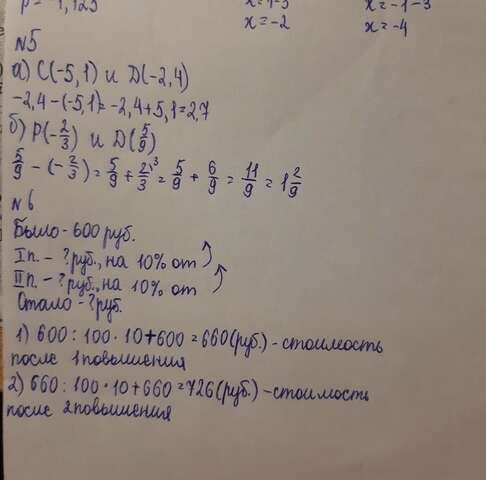 x = -2
x = -1 - 3
x = -4
N5
а) C(-5,1) и D(-2,4)
-2,4 - (-5,1) = -2,4 + 5,1 = 2,7
б) P(-2/3) и D(5/9)
5/9 - (-2/3) = 5/9 + 2/3^3 = 5/9 + 6/9 = 11/9 = 1 2/9
N6
Было - 600 руб.
I п. - ? руб., на 10% от
II п. - ? руб., на 10% от
Стало - ? руб.
1) 600 : 100 · 10 + 600 = 660 (руб.) - стоимость
после 1 повышения
2) 660 : 100 · 10 + 660 = 726 (руб.) - стоимость
после 2 повышения